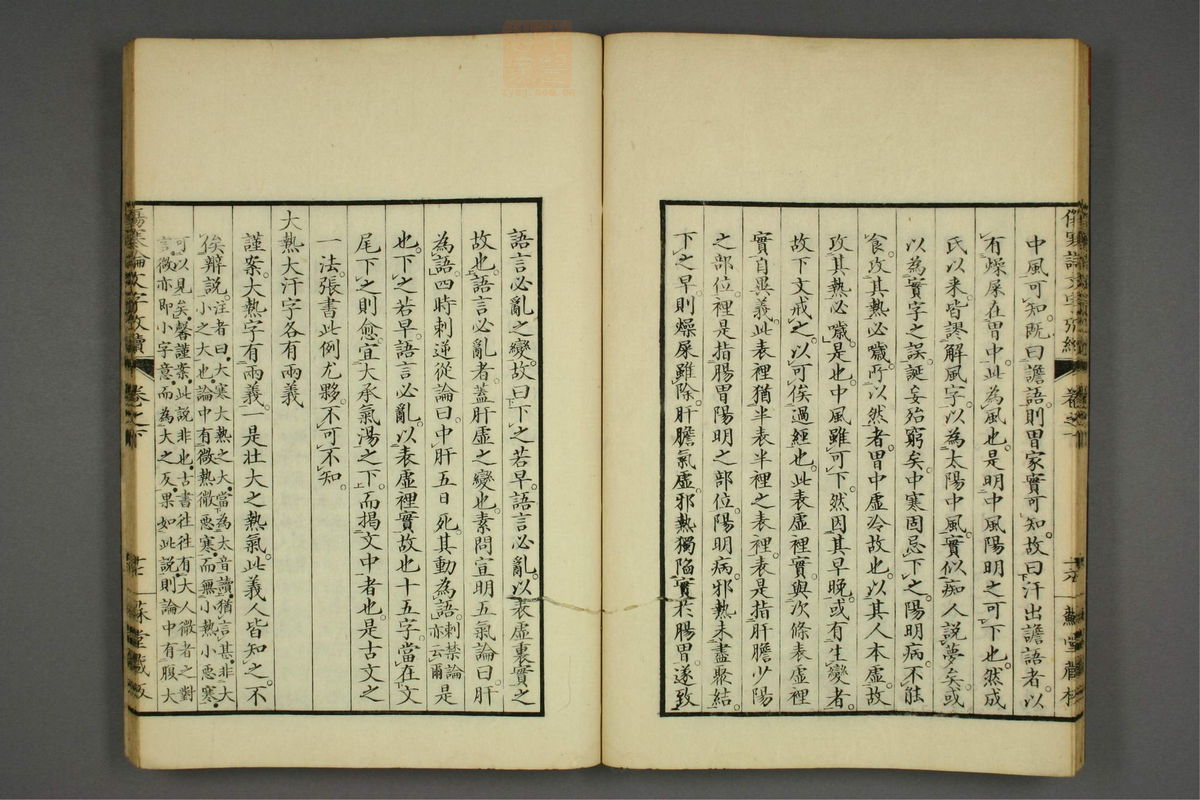 中風可知。既曰譫語。則胃家實可知。故曰汗出譫語者。以
有燥屎在胃中。此為風也。是明中風陽明之可下也。然成
氏以來。皆謬解風字。以為太陽中風。實似痴人說夢矣。或
以為實字之誤。誕妄殆窮矣。中寒固忌下之。陽明病。不能
食。攻其熱必噦。所以然者。胃中虛冷故也。以其人本虛。故
攻其熱必噦。是也。中風雖可下。然因其早晚。或有生變者。
故下文戒之。以可俟過經也。此表虛裡實。與次條表虛裡
實自異義。此表裡猶半表半裡之表裡。表是指肝膽少陽
之部位。裡是指腸胃陽明之部位。陽明病。邪熱未盡聚結。
下之早。則燥屎雖除。肝膽氣虛。邪熱獨陷實於腸胃。遂致
語言必亂之變。故曰下之若早。語言必亂。以表虛裏實之
故也。語言必亂者。蓋肝虛之變也。素問宣明五氣論曰。肝
為語。四時刺逆從論曰。中肝五日死。其動為語。刺禁論亦云爾是
也。下之若早。語言必亂。以表虛裡實故也十五字。當在文
尾下之則愈。宜大承氣湯之下。而揭文中者也。是古文之
一法。張書此例尤夥。不可不知。
大熱大汗字各有兩義
謹案。大熱字有兩義。一是壯大之熱氣。此義人皆知之。不
俟辨說。注者曰。大寒大熱之大。當為太音讀。猶言甚。非大
小之大也。論中有微熱微惡寒。而無小熱小惡寒。
可以見矣。馨謹案。此說非也。古書往往有大人微者之對
言。微亦即小字意。而為大之反。果如此說。則論中有腹大
傷寒論文字攷續
卷之下